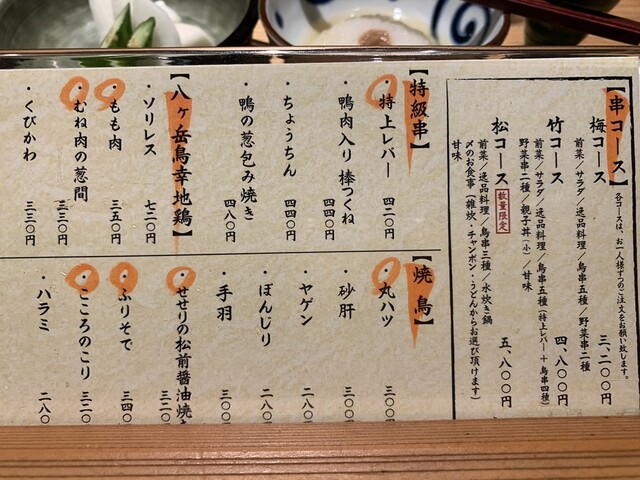 【串コース】
各コースは、お一人様ずつのご注文をお願い致します。
梅コース
前菜／サラダ／逸品料理／鳥串五種／野菜串二種
三、二〇〇円
竹コース
前菜／サラダ／逸品料理／鳥串五種(特上レバー＋鳥串四種)
野菜串二種／親子丼(小)／甘味
四、八〇〇円
松コース
数量限定
前菜／逸品料理／鳥串三種／水炊き鍋
〆のお食事(雑炊・チャンポン・うどんからお選び頂けます)
甘味
五、八〇〇円
【特級串】
・特上レバー
四二〇円
・鴨肉入り棒つくね
四四〇円
・ちょうちん
四四〇円
・鴨の葱包み焼き
四八〇円
【八ヶ岳鳥幸地鶏】
・ソリレス
七二〇円
・もも肉
三五〇円
・むね肉の葱間
三三〇円
・くびかわ
三三〇円
【焼鳥】
・丸ハツ
三〇〇円
・砂肝
三〇〇円
・ヤゲン
二八〇円
・ぼんじり
二八〇円
・手羽
三〇〇
・せせりの松前醤油焼き
三二〇
・ふりそで
三四〇
・こころのこり
三二〇
・ハラミ
二八〇